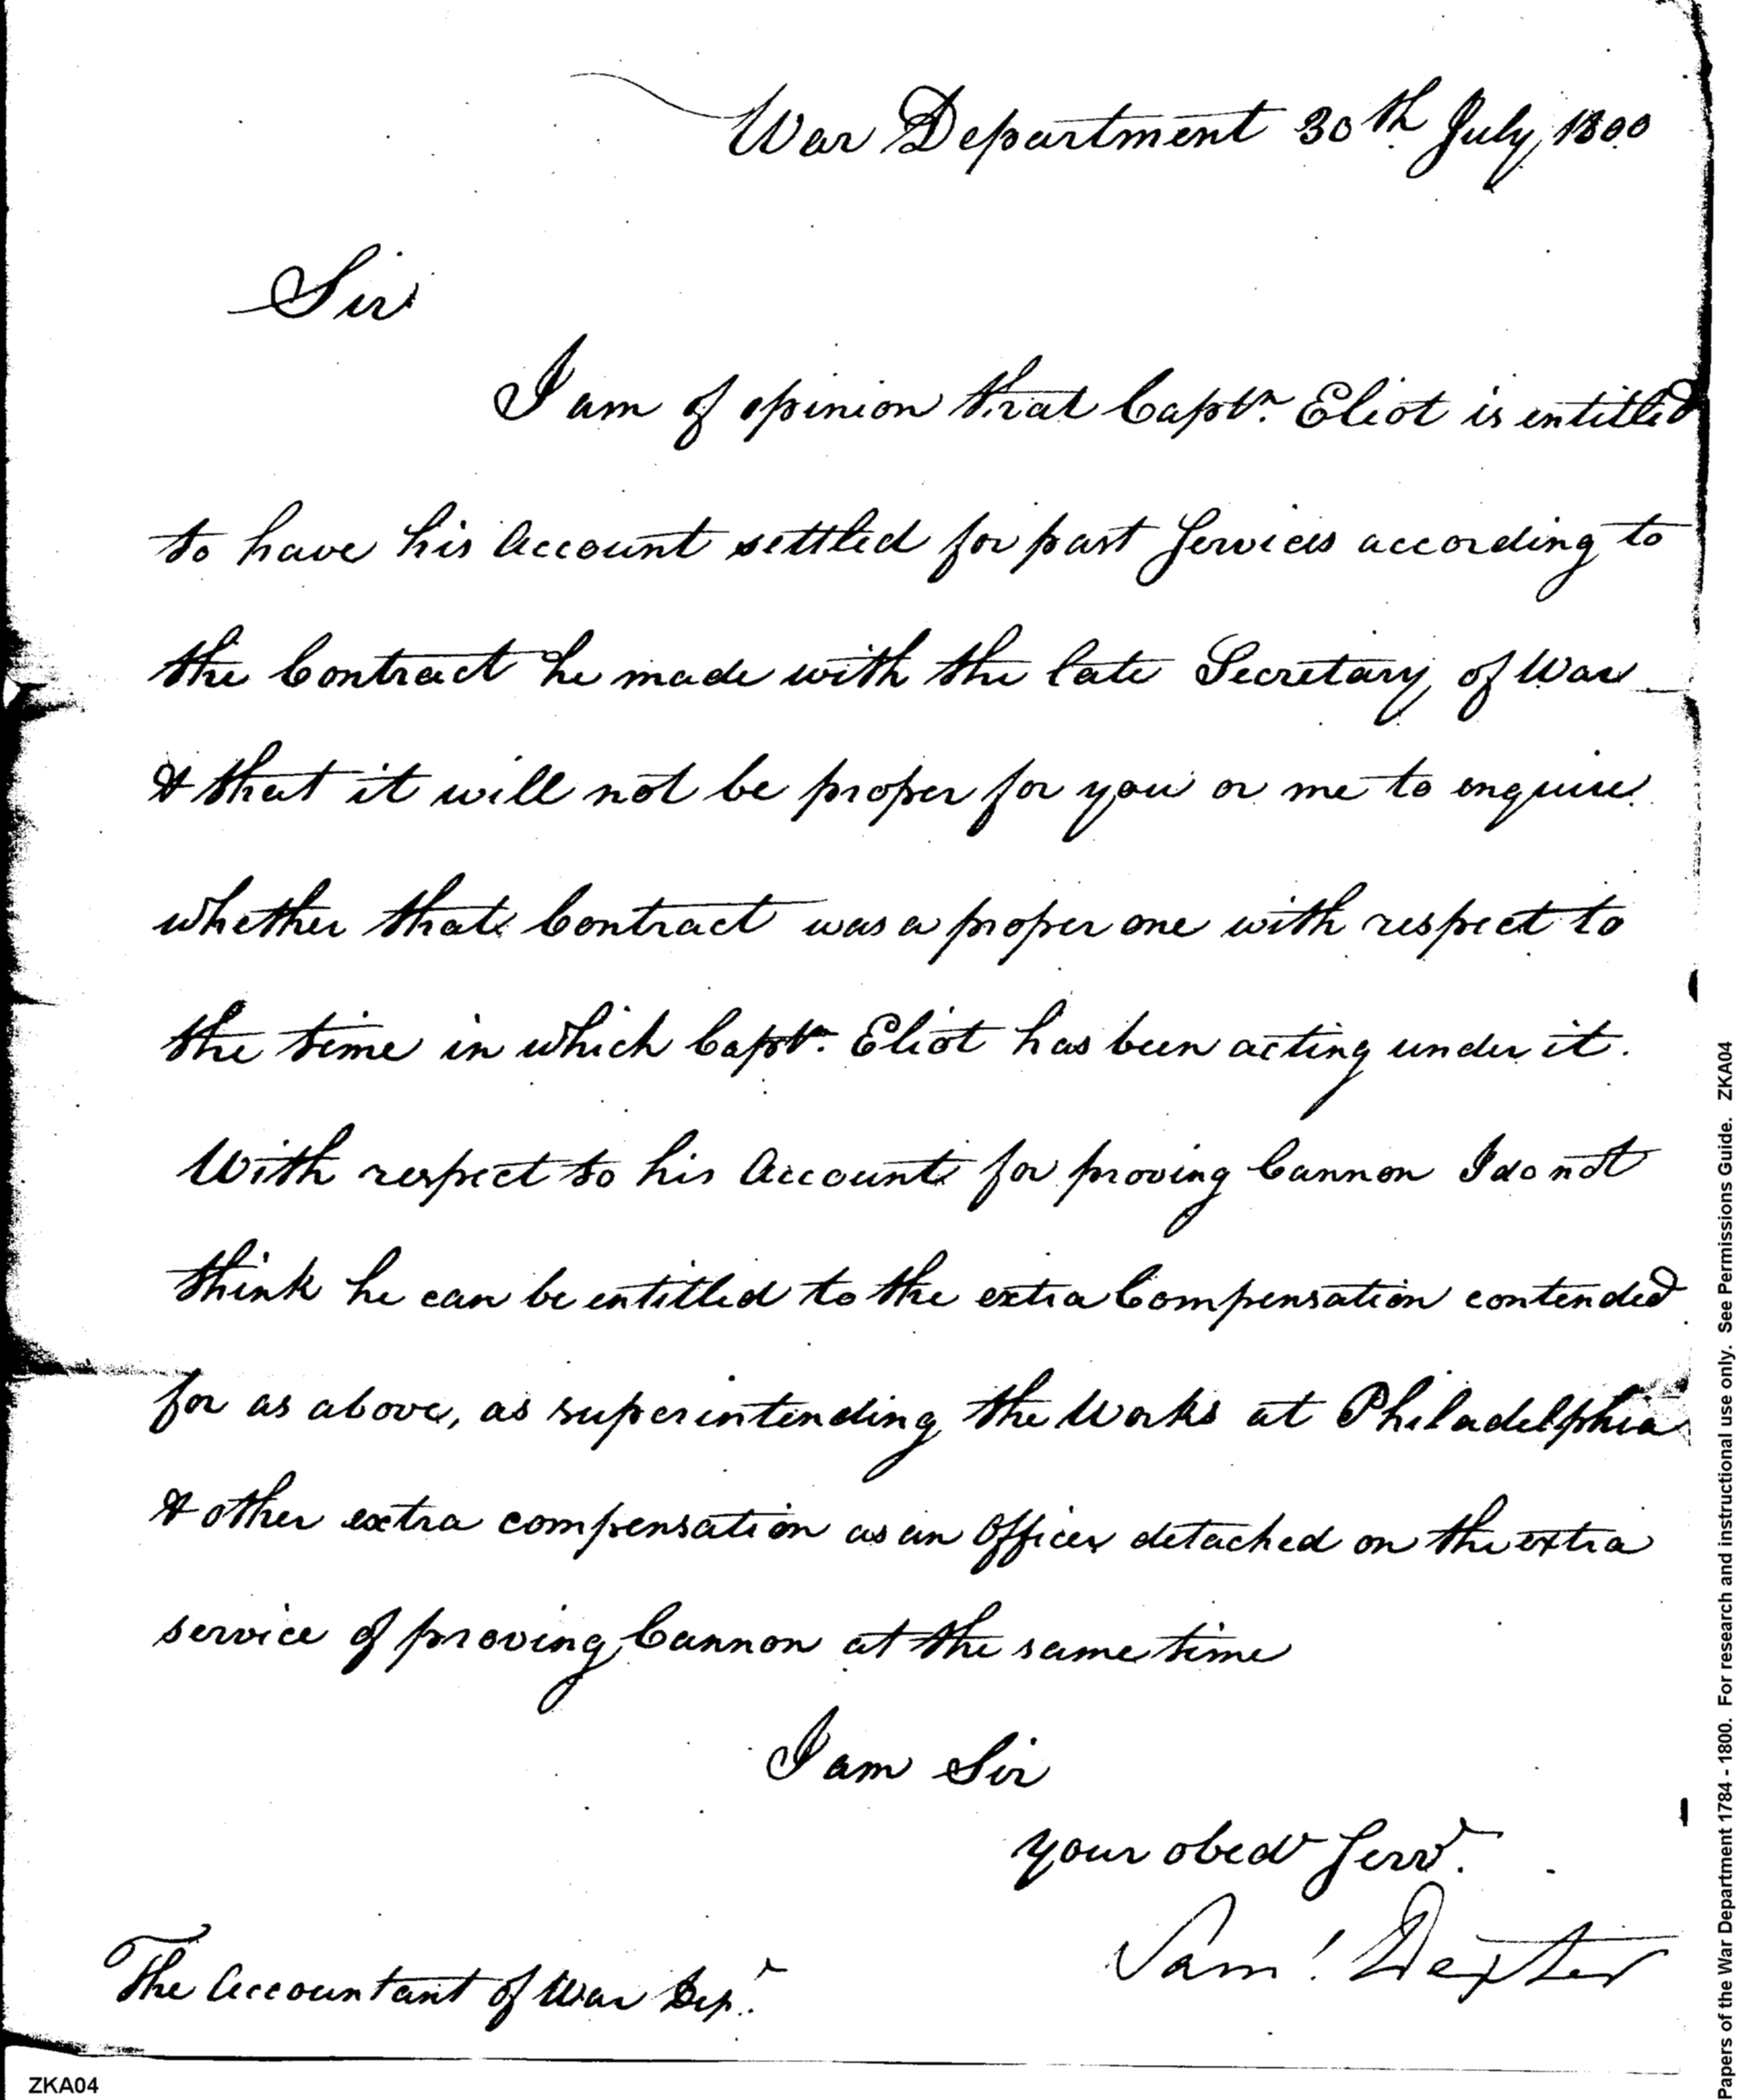 War Department 30th July 1800
Sir
I am of opinion that Captn. Eliot is entitled
to have his Account settled for past Services according to
the Contract he made with the late Secretary of War
& that it will not be proper for you or me to enquire
whether that Contract was a proper one with respect to
the time in which Captn. Eliot has been acting under it.
With respect to his Account for proving Cannon I do not
think he can be entitled to the extra Compensation contended
for as above, as superintending the Works at Philadelphia
& other extra compensation as an Officer detached on the extra
service of proving Cannon at the same time
I am Sir
your obedt Servt.
Saml. Dexter
The Accountant of War Dept.
ZKA04
Papers of the War Department 1784 - 1800. For research and instructional use only. See Permissions Guide. ZKA04